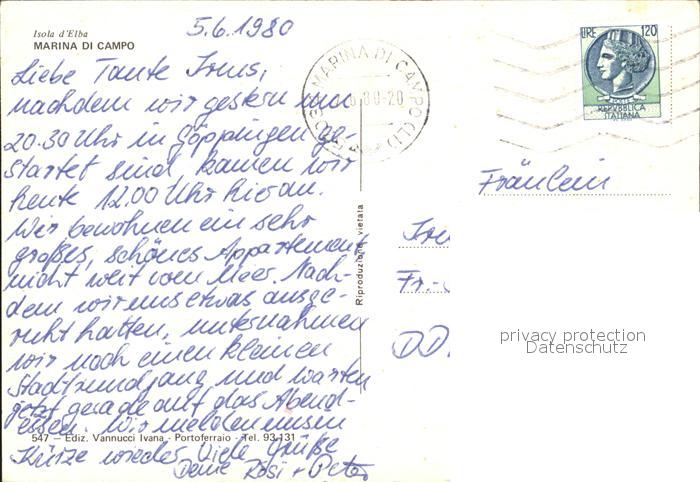 5.6.1980
Isola d'Elba
MARINA DI CAMPO
Liebe Tante Irms,
nachdem wir gestern um
20.30 Uhr in Göppingen ge-
startet sind, kamen wir
heute 12.00 Uhr hier an.
Wir bewohnen ein sehr
großes, schönes Appartement
nicht weit vom Meer. Nach-
dem wir uns etwas ausge-
ruht hatten, unternahmen
wir noch einen kleinen
Stadtrundgang und warten
jetzt gerade auf das Abend-
essen. Wir melden uns in
547 — Ediz. Vannucci Ivana - Portoferraio - Tel. 93.131
Kürze wieder. Viele Grüße
Deine Rosi + Peter
Riproduzione vietata
MARINA DI CAMPO (LI)
6.80-20
LIRE 120
REPUBBLICA
ITALIANA
Fräulein
Fr.-
privacy protection
Datenschutz